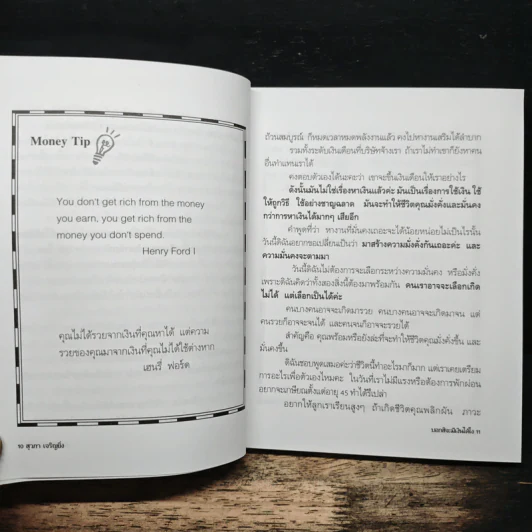 Money Tip
You don't get rich from the money
you earn, you get rich from the
money you don't spend.
Henry Ford I
คุณไม่ได้รวยจากเงินที่คุณหาได้ แต่ความ
รวยของคุณมาจากเงินที่คุณไม่ได้ใช้ต่างหาก
เฮนรี่ ฟอร์ด
๑๐ สุวภา เจริญยิ่ง
ถ้วนสมบูรณ์ ก็หมดเวลาหมดพลังงานแล้ว คงไปหางานเสริมได้ลำบาก
รวมทั้งระดับเงินเดือนที่บริษัทจ้างเรา ถ้าเราไม่ทำเขาก็ยังหาคน
อื่นทำแทนเราได้
คงตอบตัวเองได้นะคะว่า เขาจะขึ้นเงินเดือนให้เราอย่างไร
ดังนั้นมันไม่ใช่เรื่องหาเงินแล้วค่ะ มันเป็นเรื่องการใช้เงิน ใช้
ให้ถูกวิธี ใช้อย่างชาญฉลาด มันจะทำให้ชีวิตคุณมั่งคั่งและมั่นคง
กว่าการหาเงินได้มากๆ เสียอีก
คำพูดที่ว่า หางานที่มั่นคงเถอะจะได้น้อยหน่อยไม่เป็นไรนั้น
วันนี้ดิฉันอยากขอเปลี่ยนเป็นว่า มาสร้างความมั่งคั่งกันเถอะค่ะ และ
ความมั่นคงจะตามมา
วันนี้ดิฉันไม่ต้องการจะเลือกระหว่างความมั่นคง หรือมั่งคั่ง
เพราะดิฉันคิดว่าทั้งสองสิ่งนี้ต้องมาพร้อมกัน คนเราอาจจะเลือกเกิด
ไม่ได้ แต่เลือกเป็นได้ค่ะ
คนบางคนอาจจะเกิดมารวย คนบางคนอาจจะเกิดมาจน แต่
คนรวยก็อาจจะจนได้ และคนจนก็อาจจะรวยได้
สำคัญคือ คุณพร้อมหรือยังล่ะที่จะทำให้ชีวิตคุณมั่งคั่งขึ้น และ
มั่นคงขึ้น
ดิฉันชอบพูดเสมอค่ะว่าชีวิตนี้ทำอะไรมาก็มาก แต่เราเคยเตรียม
การอะไรเพื่อตัวเองไหมคะ ในวันที่เราไม่มีแรงหรือต้องการพักผ่อน
อยากจะเกษียณตั้งแต่อายุ 45 ทำได้รึเปล่า
อยากให้ลูกเราเรียนสูงๆ ถ้าเกิดชีวิตคุณพลิกผัน ภาวะ